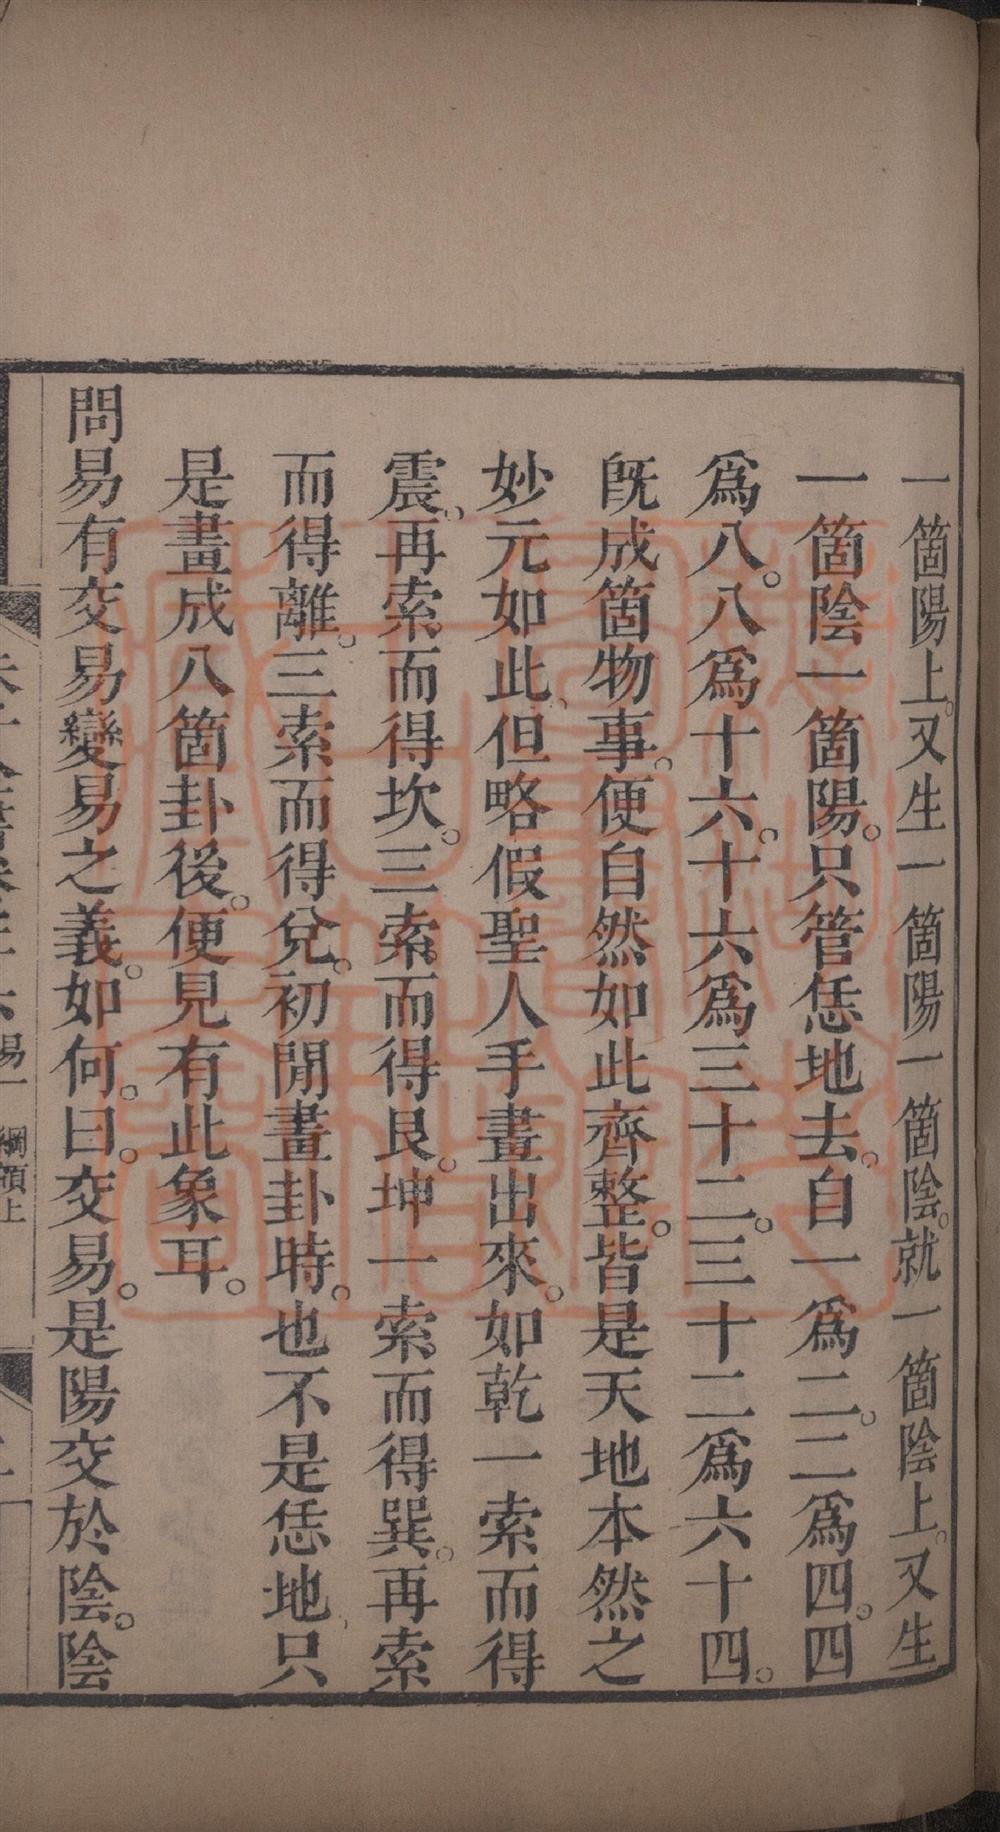 一箇陽上。又生一箇陽一箇陰。就一箇陰上。又生
一箇陰一箇陽。只管恁地去。自一爲二。二爲四。四
爲八。八爲十六。十六爲三十二。三十二爲六十四。
旣成箇物事。便自然如此齊整。皆是天地本然之
妙元如此、但略假聖人手畫出來。如乾一索而得
震。再索而得坎。三索而得艮。坤一索而得巽。再索
而得離。三索而得兌。初閒畫卦時。也不是恁地、只
是畫成八箇卦後。便見有此象耳。
問易有交易變易之義。如何。曰。交易。是陽交於陰。陰
易一 綱領上